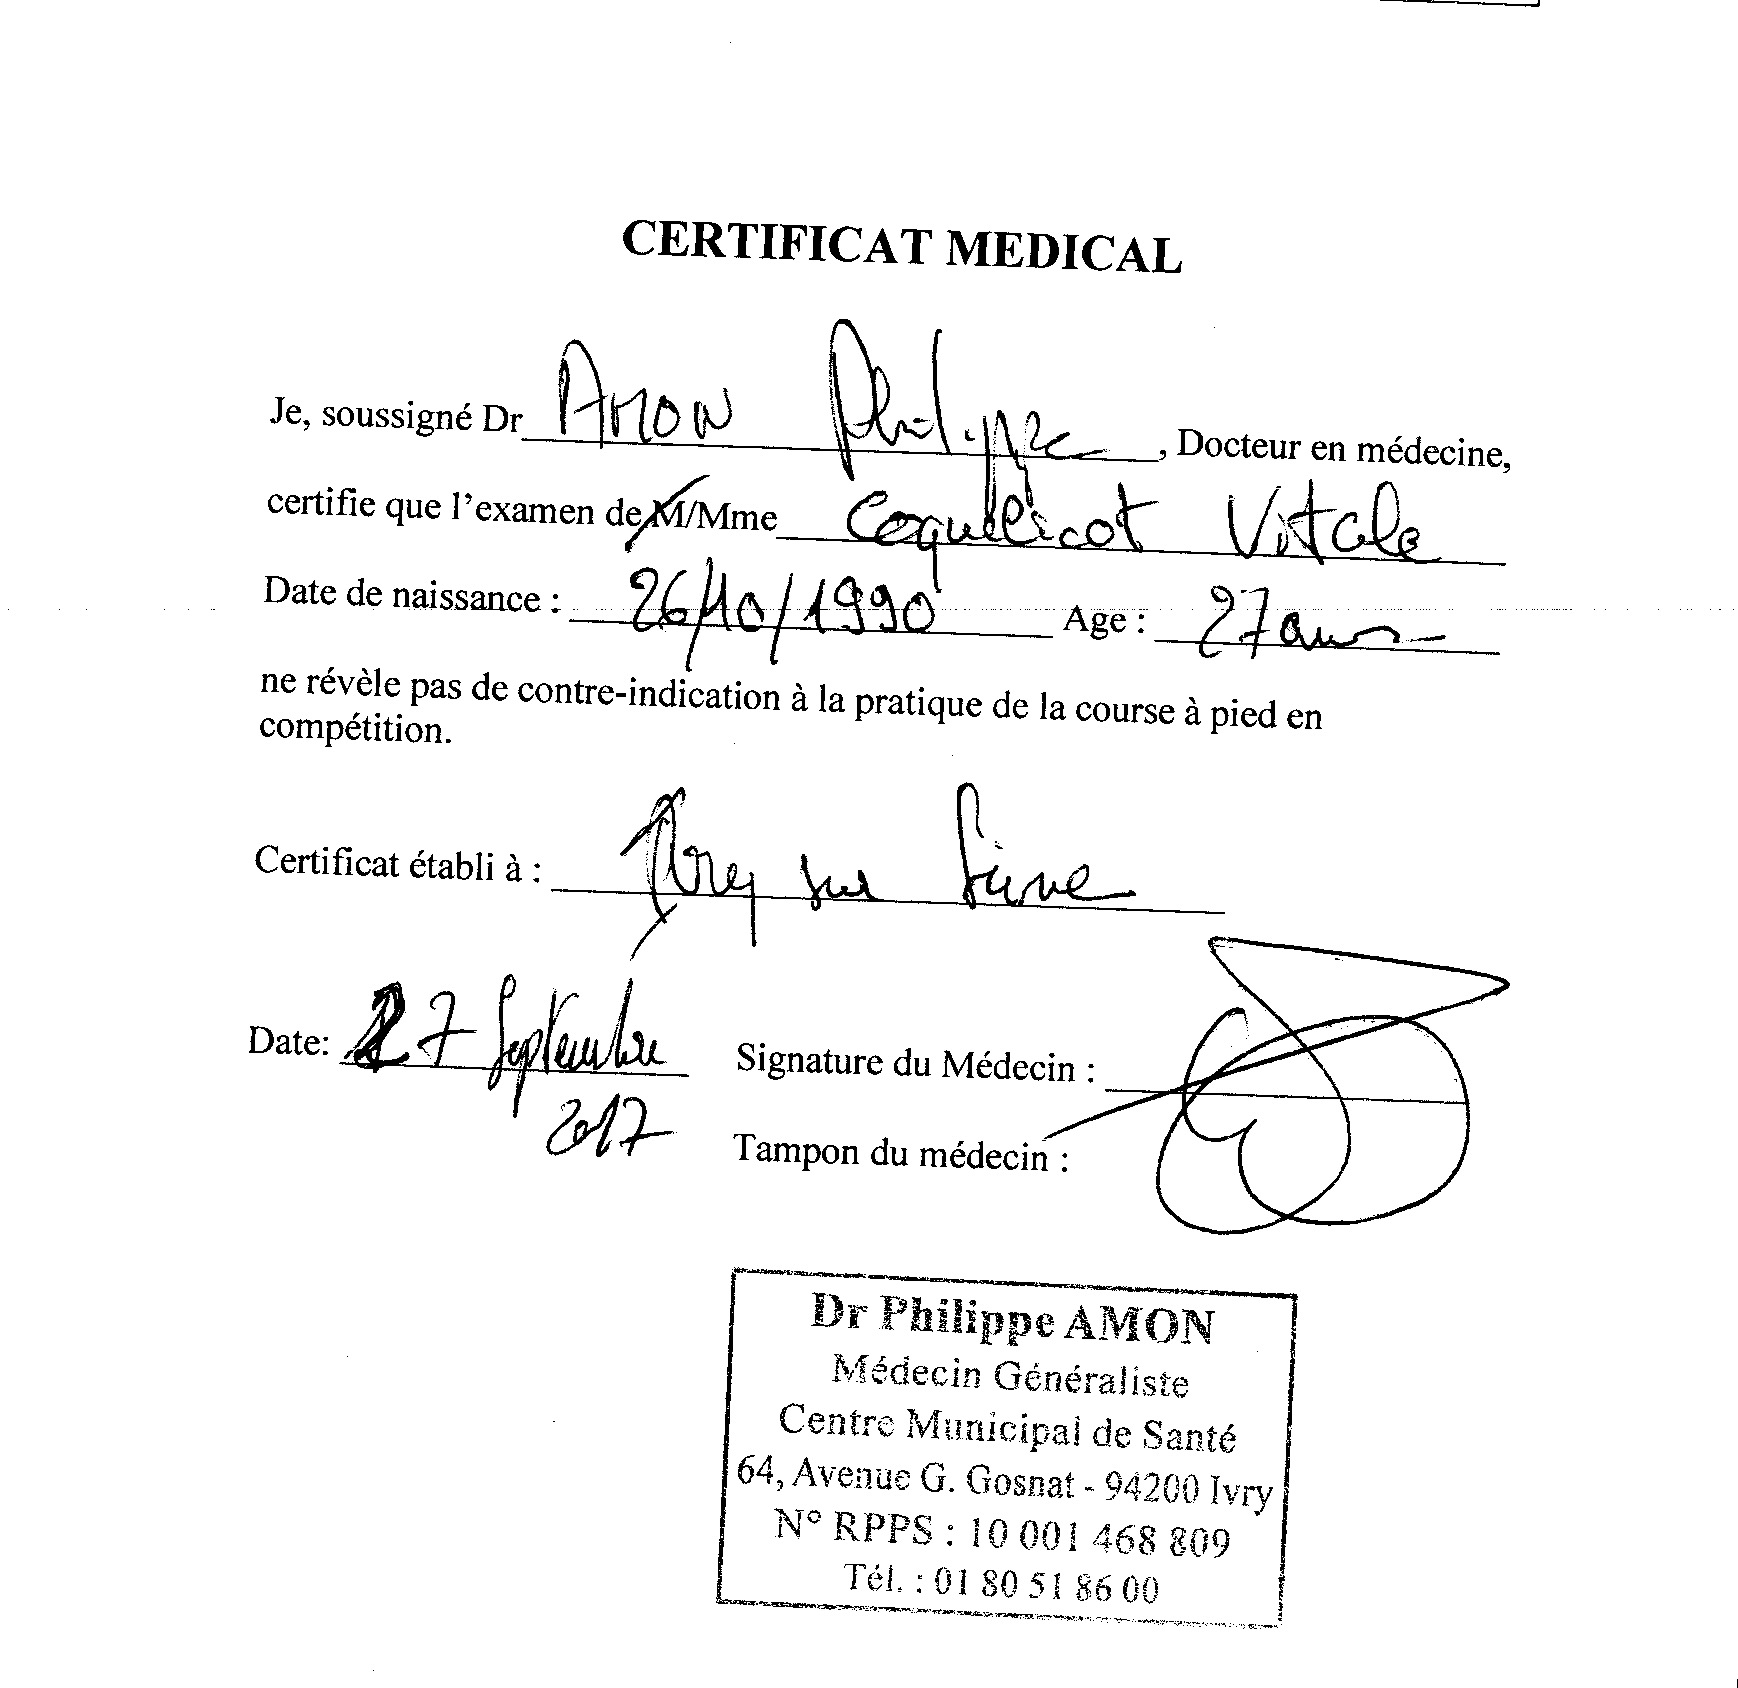 CERTIFICAT MEDICAL
Je, soussigné Dr AMON Philippe, Docteur en médecine,
certifie que l'examen de M/Mme Coquelicot Vitale
Date de naissance : 26/10/1990 Age : 27 ans
ne révèle pas de contre-indication à la pratique de la course à pied en
compétition.
Certificat établi à : Ivry sur Seine
Date: 27 Septembre
2017
Signature du Médecin :
Tampon du médecin :
Dr Philippe AMON
Médecin Généraliste
Centre Municipal de Santé
64, Avenue G. Gosnat - 94200 Ivry
N° RPPS : 10 001 468 809
Tél. : 01 80 51 86 00